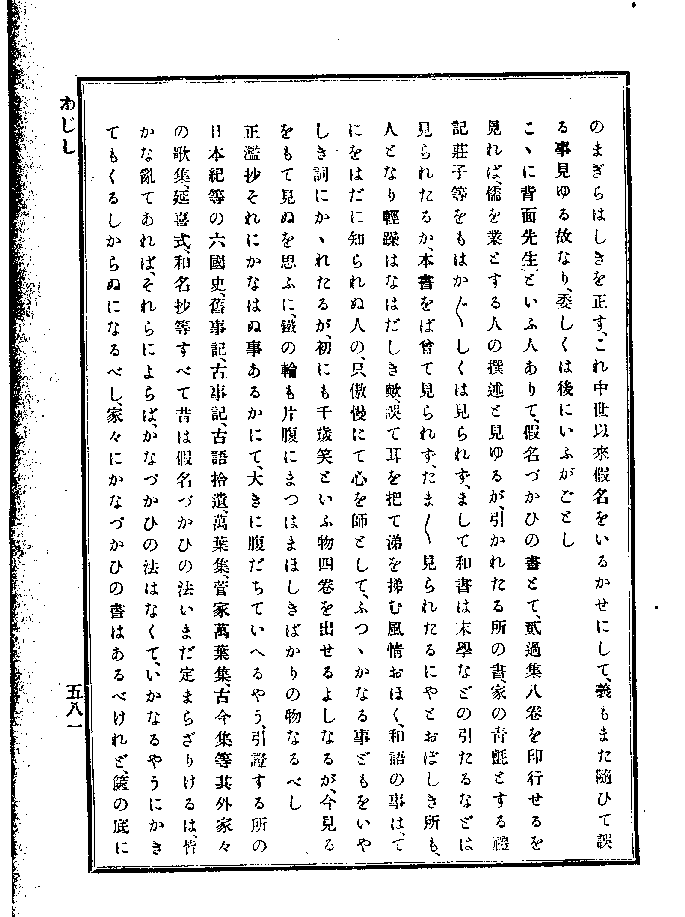 のまぎらはしきを正す、これ中世以來假名をいるかせにして、義もまた隨ひて誤
る事見ゆる故なり、委しくは後にいふがごとし
こゝに背面先生といふ人ありて、假名づかひの書とて、貳過集八卷を印行せるを
見れば、儒を業とする人の撰述と見ゆるが、引かれたる所の書、家の靑氈とする禮
記莊子等をもはか〴〵しくは見られず、まして和書は末學などの引たるなどは
見られたるか、本書をば曾て見られず、たま〳〵見られたるにやとおぼしき所も、
人となり輕躁はなはだしき歟、誤て耳を把て涕を擤む風情おほく、和語の事は、て
にをはだに知られぬ人の、只傲慢にて心を師として、ふつゝかなる事どもをいや
しき詞にかゝれたるが、初にも千歲笑といふ物四卷を出せるよしなるが、今見る
をもて見ぬを思ふに、鐵の輪も片腹にまつはまほしきばかりの物なるべし
正濫抄それにかなはぬ事あるかにて、大きに腹だちていへるやう、引證する所の
日本紀等の六國史、舊事記、古事記、古語拾遺、萬葉集、菅家萬葉集、古今集等其外家々
の歌集、延喜式、和名抄等すべて昔は假名づかひの法いまだ定まらざりけるは、皆
かな亂てあれば、それらによらば、かなづかひの法はなくて、いかなるやうにかき
てもくるしからぬになるべし、家々にかなづかひの書はあるべけれど、篋の底に
わじし
五八一